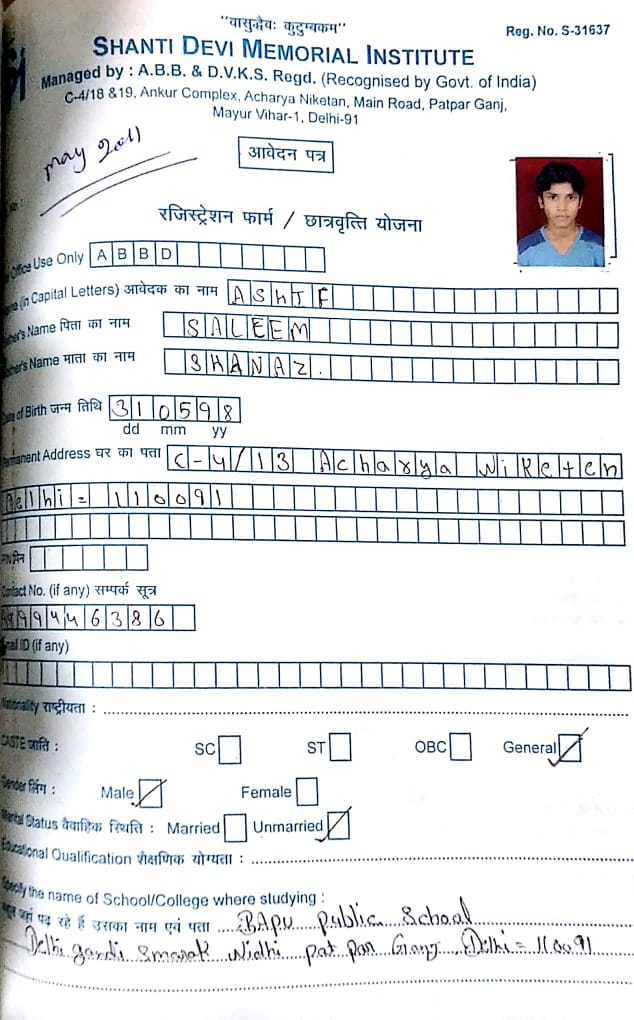 "वासुद्धैवः कुटुम्बकम"
Reg. No. S-31637
SHANTI DEVI MEMORIAL INSTITUTE
Managed by : A.B.B. & D.V.K.S. Regd. (Recognised by Govt. of India)
C-4/18 &19, Ankur Complex, Acharya Niketan, Main Road, Patpar Ganj,
Mayur Vihar-1, Delhi-91
may 2011
आवेदन पत्र
रजिस्ट्रेशन फार्म / छात्रवृत्ति योजना
Office Use Only ABBD
(in Capital Letters) आवेदक का नाम ASHIF
Name पिता का नाम SALEEM
Name माता का नाम SHANAZ.
of Birth जन्म तिथि 310598
dd mm yy
Address घर का पता C-4/13 Acharya Niketen
Delhi = 110091
पिन
Contact No. (if any) सम्पर्क सूत्र
99446386
ID (if any)
Nationality राष्ट्रीयता :
CASTE जाति : SC ST OBC General
Gender लिंग : Male Female
Marital Status वैवाहिक स्थिति : Married Unmarried
Educational Qualification शैक्षणिक योग्यता :
Specify the name of School/College where studying :
जहां पढ़ रहे हैं उसका नाम एवं पता BAPU Public School
Delhi gandi Smarak Nidhi pat par Gang. Delhi = 110091